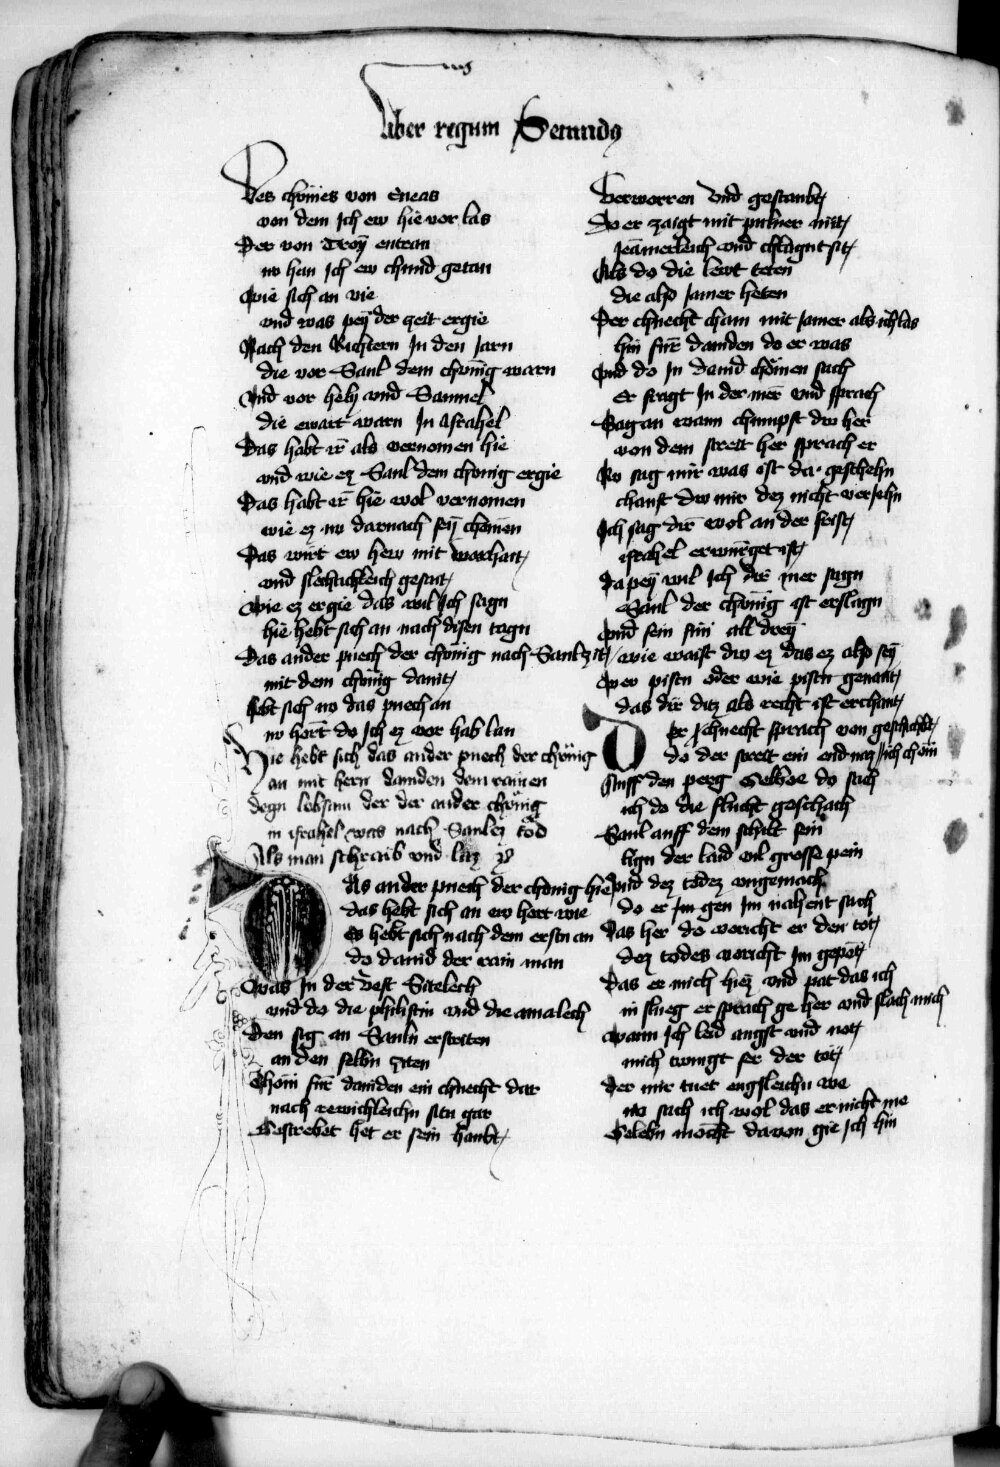 Liber regum Secundus
Des chömes von Eneas
von dem Jch ew hie vor las
Der von Troÿ entran
no han Jch ew chund getan
Wie sich an vie
vnd was peÿ der zeit ergie
Nach den Richtern Jn den Jarn
die vor Saul dem chönig warn
Vnd vor Helÿ vnd Samuel
die ewart warn Jn Jsrahel
Das habt ir als vernomen hie
vnd wie ez Saul dem chönig ergie
Das habt ir hie wol vernomen
wie ez no darnach seÿ chömen
Das wirt ew hew mit warhait
vnd slechtichleich gesait
Wie ez ergie das wil Jch sagn
hie hebt sich an nach disen tagn
Das ander puech der chönig nach Saulz zeit
mit dem chönig dauit
Hebt sich no das puech an
no hört do Jch ez vor hab lan
Hie hebt sich das ander puech der chönig
an mit hern dauiden dem rainen
degn lobsam der der ander chönig
in israhel was nach Saulez töd
Als man schraib vnd laz
Das ander puech der chönig hie
das hebt sich an ew hört wie
es hebt sich nach dem erstn an
do dauid der rain man
Was Jn der vest Sitelech
vnd do die philistin vnd die amalech
Den sig an Sauln erstriten
an den selbn ziten
Chöm für dauiden ein chnecht dar
nach rewichleichn sitn gar
Bestrebet het er sein haubt
Verworren vnd gestaubt
Do er zaigt mit mit
Jeämerleich vnd chlagnt sit
Als do die lewt teten
die also Jamer heten
Der chnecht cham mit Jamer als ich las
hin für dauiden do er was
Vnd do Jn dauid chömen sach
Er fragt Jn der mer vnd sprach
Sag an wann chumpst dw her
von dem streit her sprach er
No sag mir was ist da geschehn
chanst dw mir dez nicht veriehn
Jch sag dir wol an der frist
israhel erwürget ist
Da peÿ wil Jch dir mer sagn
Saul der chönig ist erslagn
Vnd sein sün all dreÿ
wie waist dw ez das ez also seÿ
Wer pistu oder wie pistu genant
das dir ditz als recht ist erchant
Der chnecht sprach von geschicht
do der streit ein end naz ich chöm
Auff den perg Gelboe do sach
ich do die flucht geschach
Saul auff dem schilt sein
lign der laid vil grosse pein
Vnd dez todez vngemach
do er Jm gen Jm nahent sach
Das her do voricht er den tot
dez todes voricht Jm gepot
Das er mich hiez vnd pat das ich
in slueg er sprach ge her vnd slach mich
Wann Jch leid angst vnd not
mich twingt ser der töt
Der mir tuet engsleichn we
no sach ich wol das er nicht me
Gelebn möcht davon gie Jch hin